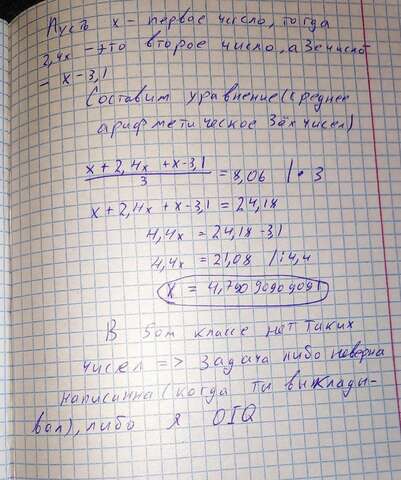 Пусть x - первое число, тогда
2,4x - это второе число, а 3е число
- x-3,1
Составим уравнение (среднее
арифметическое 3ёх чисел)
x + 2,4x + x-3,1
3
= 8,06 | • 3
x + 2,4x + x-3,1 = 24,18
4,4x = 24,18-3,1
4,4x = 21,08 | : 4,4
x = 4,7909090909
В 5ом классе нет таких
чисел => задача либо неверна
написанна (когда ты выклады-
вал), либо я 0IQ